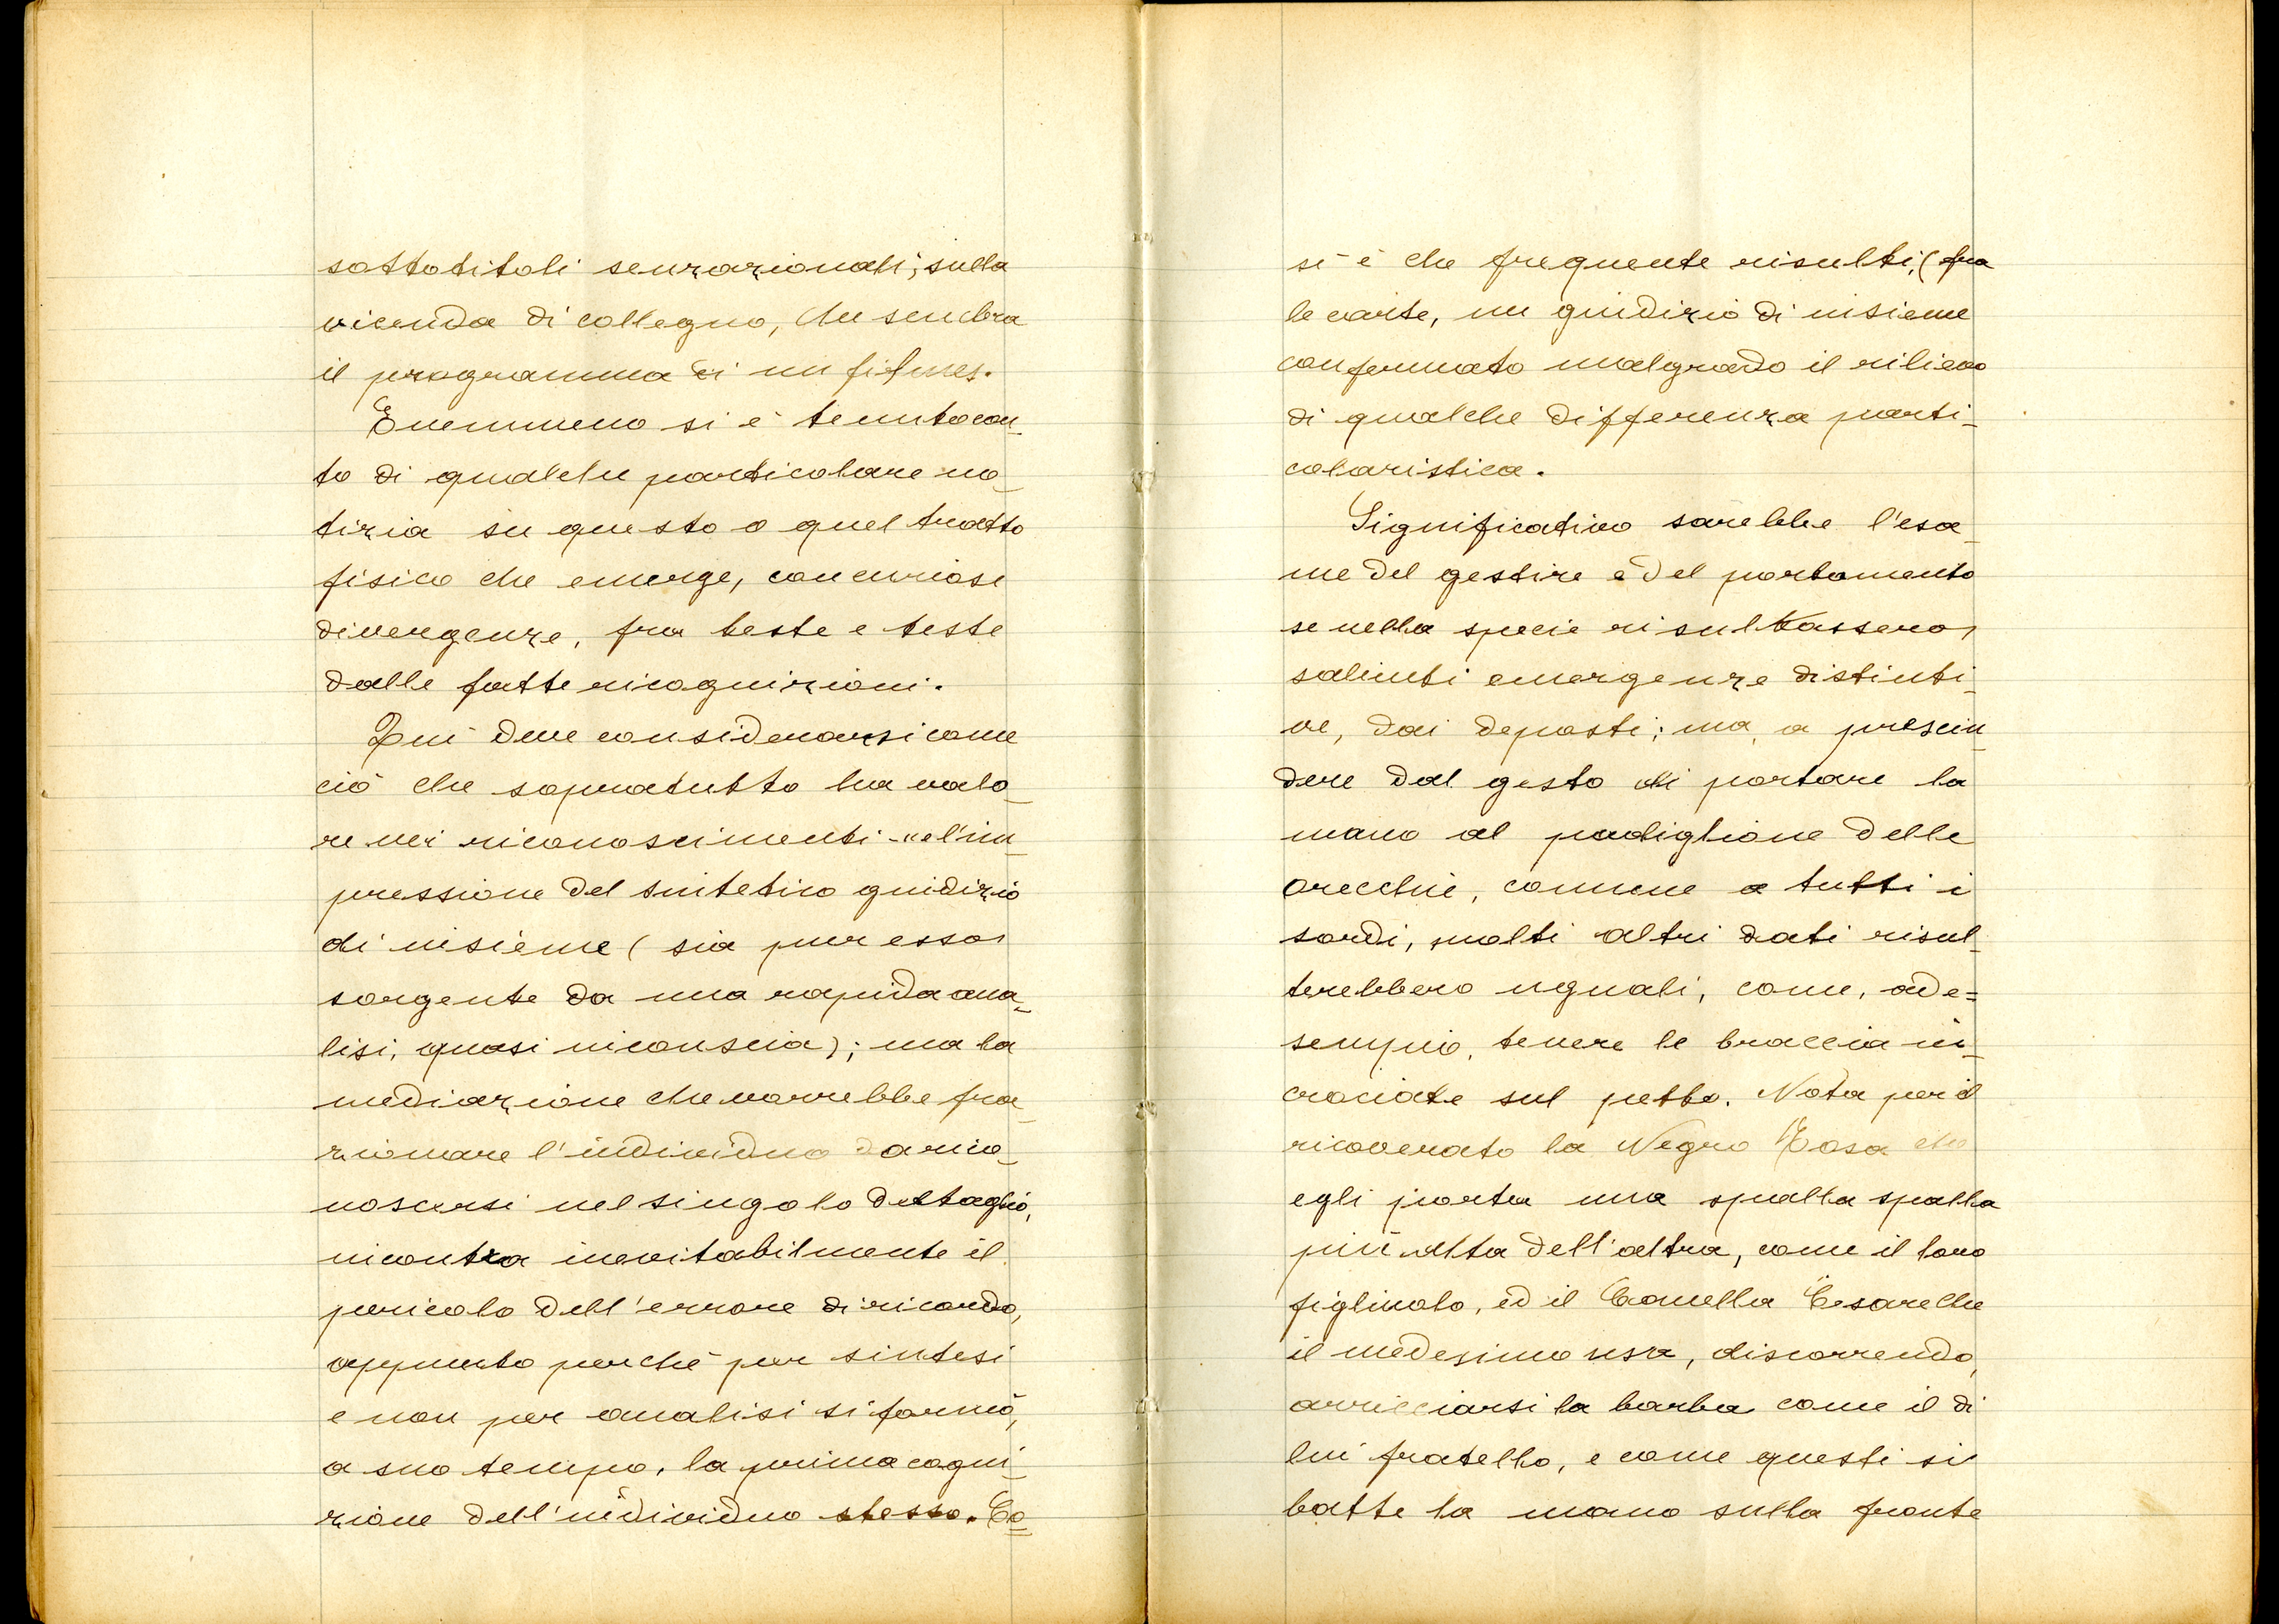 sottotitoli senzazionali, sulla
vicenda di collegno, che sembra
il programma di un filmes.
E nemmeno si è tenuto con_
to di qualche particolare no_
tizia su questo o quel tratto
fisico che emerge, con curiose
divergenze, fra teste e teste
dalle fatte ricognizioni.
Qui deve considerarsi come
ciò che sopratutto ha valo_
re nei riconoscimenti - "l'im_
pressione del sintetico giudizio
di insieme (sia pur esso
sorgente da una rapida ana_
lisi, quasi inconscia); ma la
mediazione che vorrebbe fra_
zionare l'individuo da rico_
noscersi nel singolo dettaglio,
incontra inevitabilmente il
pericolo dell'errore di ricordo,
appunto perchè per sintesi
e non per analisi si formò,
a suo tempo, la prima cogni_
zione dell'individuo stesso. Co_
sì è che frequente risulti, (fra
le carte, un giudizio di insieme
confermato malgrado il rilievo
di qualche differenza parti_
colaristica.
Significativo sarebbe l'esa_
me del gestire e del portamento
se nella specie risultassero,
salienti emergenze distinti_
ve, dai deposti; ma, a prescin_
dere dal gesto di portare la
mano al padiglione delle
orecchie, comune a tutti i
sordi, molti altri dati risul_
terebbero uguali, come, ad e=
sempio, tenere le braccia in_
crociate sul petto. Nota per il
ricoverato la Negro Rosa che
egli porta una spalla spalla
più alta dell'altra, come il loro
figliuolo, ed il Canella Cesare che
il medesimo usa, discorrendo,
arricciarsi la barba come il di
lui fratello, e come questi si
batte la mano sulla fronte